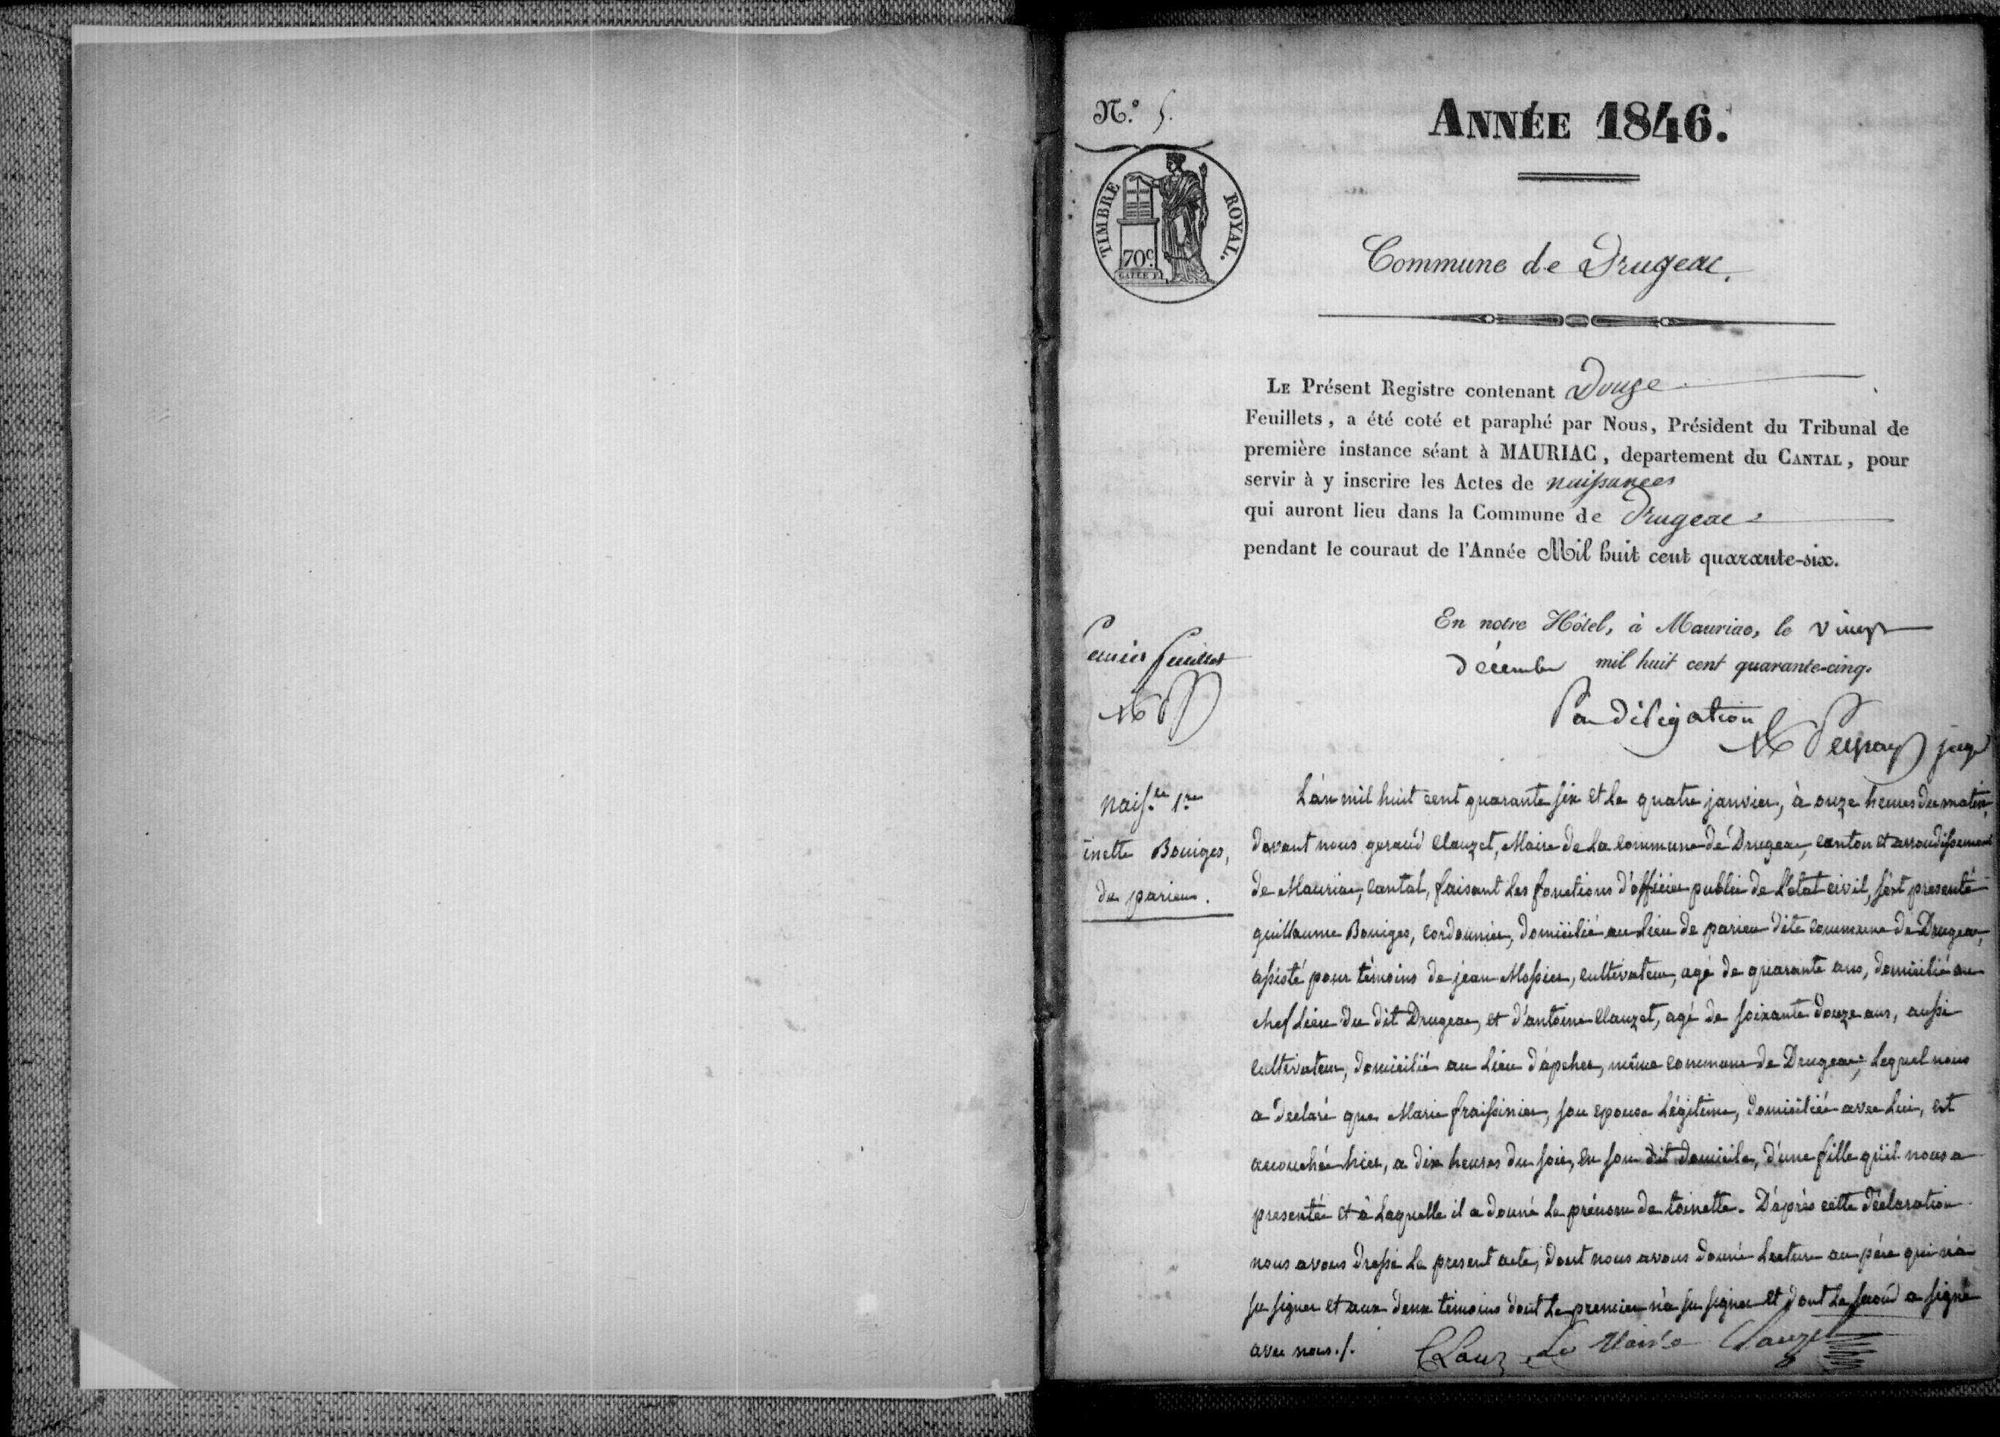 N.° 5.
ANNÉE 1846.
TIMBRE ROYAL.
70c.
Commune de Drugeac.
LE Présent Registre contenant Douze
Feuillets, a été coté et paraphé par Nous, Président du Tribunal de
première instance séant à MAURIAC, departement du CANTAL, pour
servir à y inscrire les Actes de naissances
qui auront lieu dans la Commune de Drugeac
pendant le couraut de l'Année Mil huit cent quarante-six.
En notre Hôtel, à Mauriac, le vingt
décembre mil huit cent quarante-cinq.
feuillet
Par délégation
juge
Naiss.ce 1.re
inette Bouiges,
de parieu.
L'an mil huit cent quarante six et le quatre janvier, à onze heures du matin,
devant nous geraud Clauzet, Maire de la commune de Drugeac, canton et arrondissement
de Mauriac, cantal, faisant les fonctions d'officier public de l'état civil, s'est presenté
guillaume Bouiges, cordonnier, domicilié au lieu de parieu dite commune de Drugeac,
assisté pour témoins de jean Mossier, cultivateur, agé de quarante ans, domicilié au
chef lieu du dit Drugeac, et d'antoine Clauzet, agé de soixante douze ans, aussi
cultivateur, domicilié au lieu d'apcher, même commune de Drugeac; lequel nous
a declaré que Marie fraissinier, son epouse légitime, domiciliée avec lui, est
accouchée hier, a dix heures du soir, en son dit domicile, d'une fille qu'il nous a
presentée et à laquelle il a donné le prénom de toinette. D'après cette déclaration
nous avons dressé le present acte, dont nous avons donné lecture au père qui n'a
su signer et aux deux témoins dont le premier n'a su signer et dont le second a signé
avec nous./.
Clauz Le Maire Clauzet